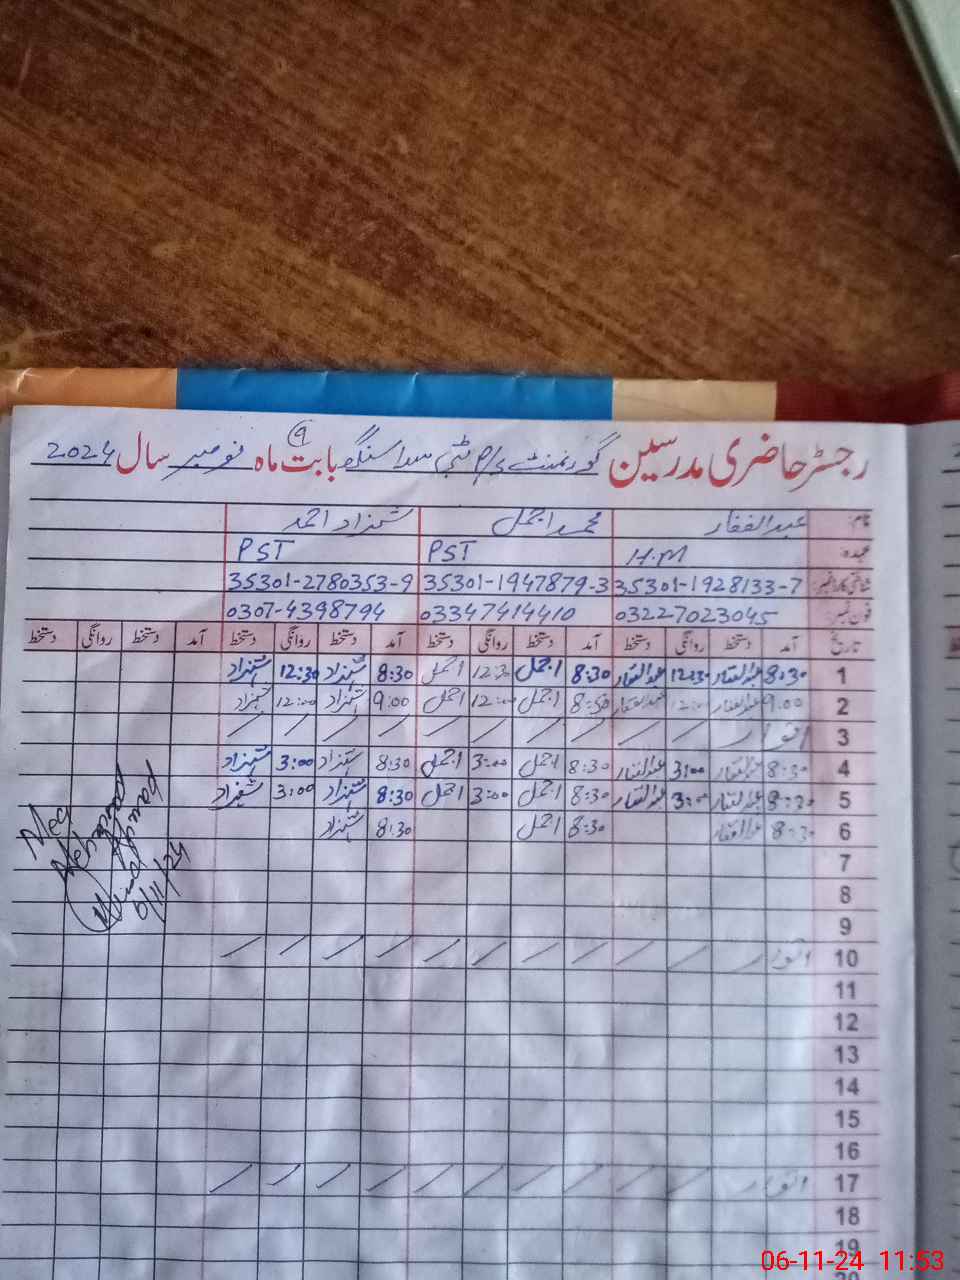 رجسٹر حاضری مدرسین گورنمنٹ P/S بابت ماه نومبر سال 2024
9
نام: عبدالغفار محمد اجمل شہزاد احمد
عہدہ: H.M PST PST
شناختی کارڈ نمبر: 35301-1928133-7 35301-1947879-3 35301-2780353-9
فون نمبر: 03227023045 03347414410 0307-4398794
تاریخ آمد دستخط روانگی دستخط آمد دستخط روانگی دستخط آمد دستخط روانگی دستخط آمد دستخط روانگی دستخط
1 8:30 عبدالغفار 12:30 عبدالغفار 8:30 اجمل 12:30 اجمل 8:30 شہزاد 12:30 شہزاد
2 9:00 عبدالغفار 12:00 عبدالغفار 8:50 اجمل 12:00 اجمل 9:00 شہزاد 12:00 شہزاد
3 اتوار
4 8:30 عبدالغفار 3:00 عبدالغفار 8:30 اجمل 3:00 اجمل 8:30 شہزاد 3:00 شہزاد
5 8:30 عبدالغفار 3:00 عبدالغفار 8:30 اجمل 3:00 اجمل 8:30 شہزاد 3:00 شہزاد
6 8:30 عبدالغفار 8:30 اجمل 8:30 شہزاد
7
8
9
10 اتوار
11
12
13
14
15
16
17 اتوار
18
19
20
6/11/24
06-11-24 11:53